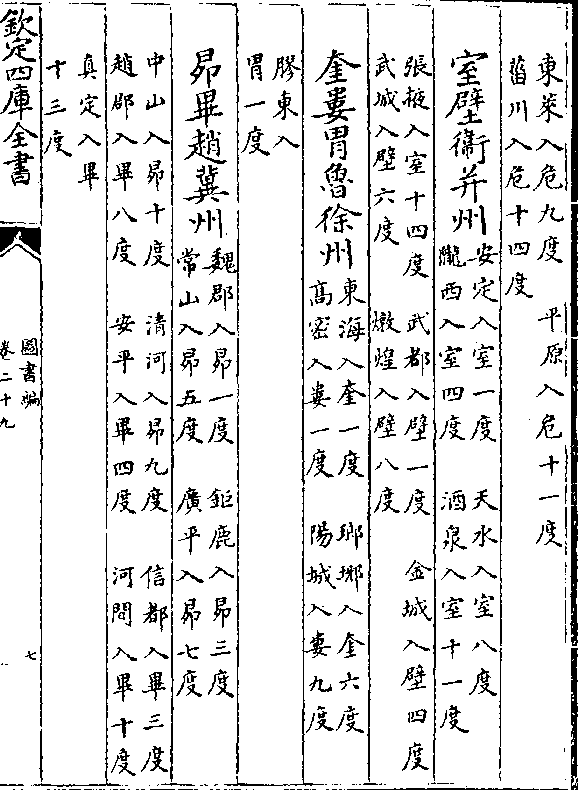 東萊入危九度 平原入危十一度
菑川入危十四度
室壁衞并州
安定入室一度 天水入室八度
隴西入室四度 酒泉入室十一度
張掖入室十四度 武都入壁一度 金城入壁四度
武城入壁六度 燉煌入壁八度
奎婁胃魯徐州
東海入奎一度 瑯琊入奎六度
高密入婁一度 陽城入婁九度
膠東入
胃一度
昴畢趙冀州
魏郡入昴一度 鉅鹿入昴三度
常山入昴五度 廣平入昴七度
中山入昴十度 清河入昴九度 信都入畢三度
趙郡入畢八度 安平入畢四度 河間入畢十度
真定入畢
十三度
欽定四庫全書
圖書編
卷二十九
七